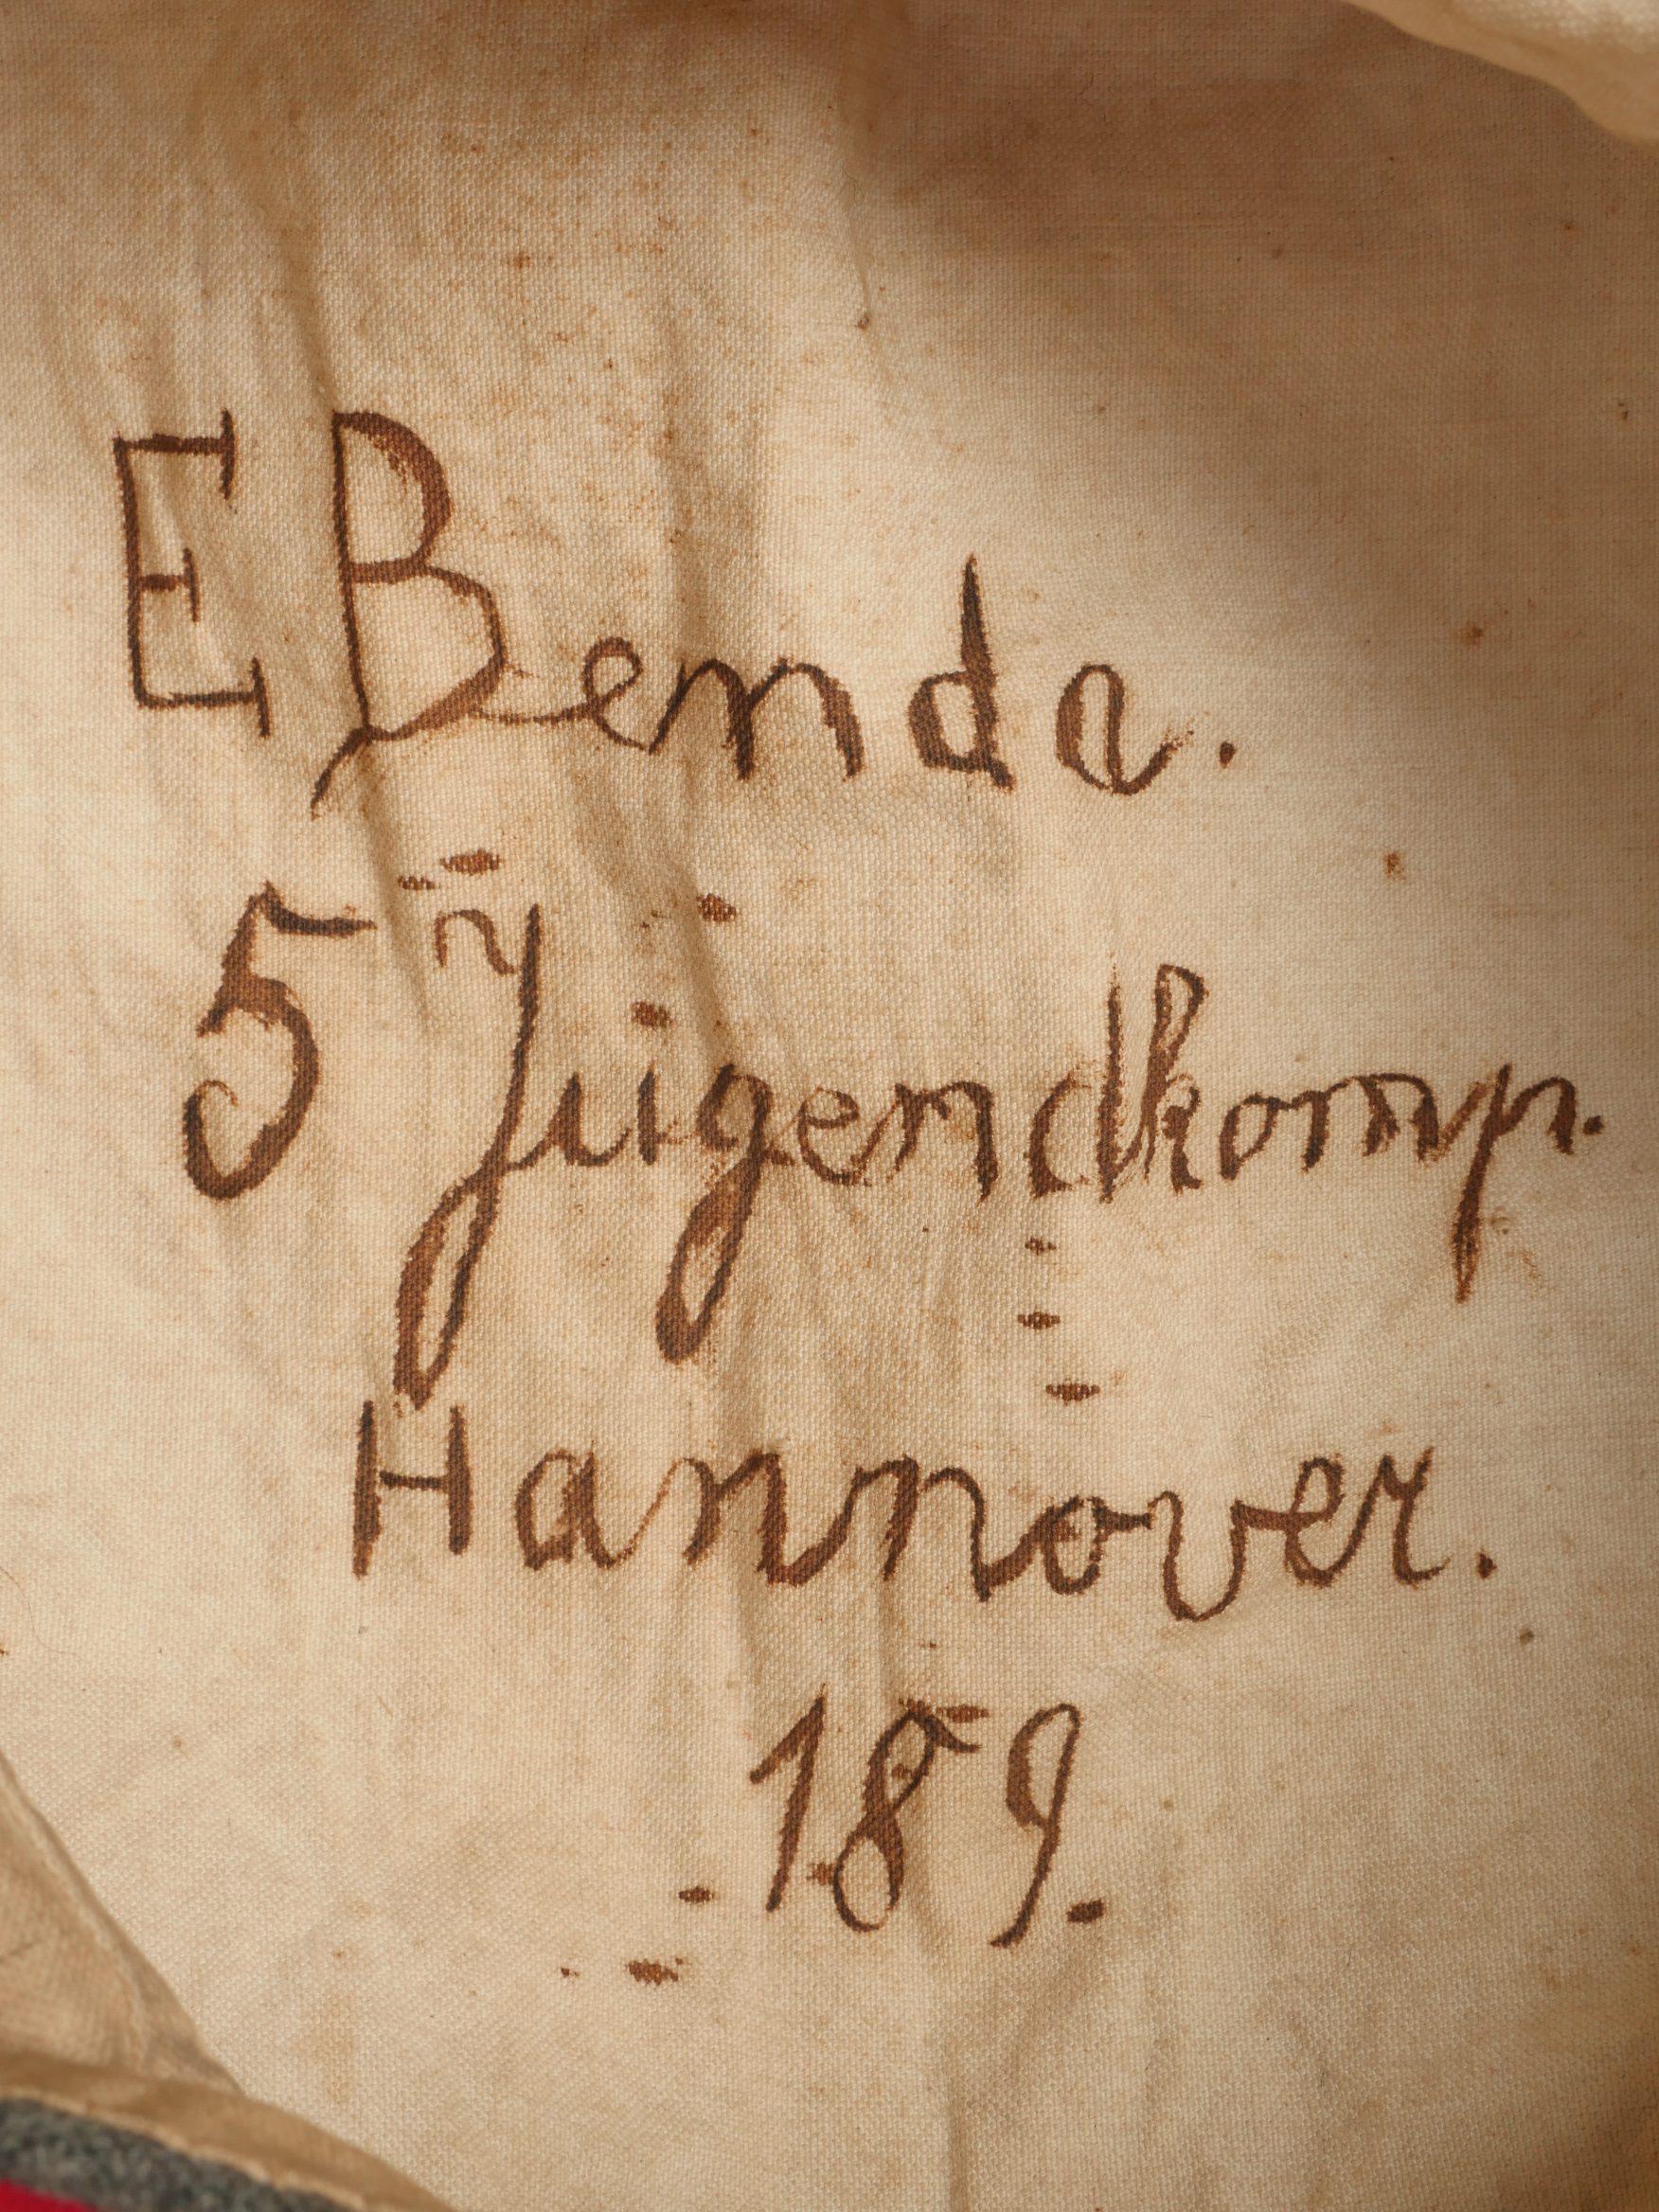 E Benda.
5 Jugendkomp.
Hannover.
189.